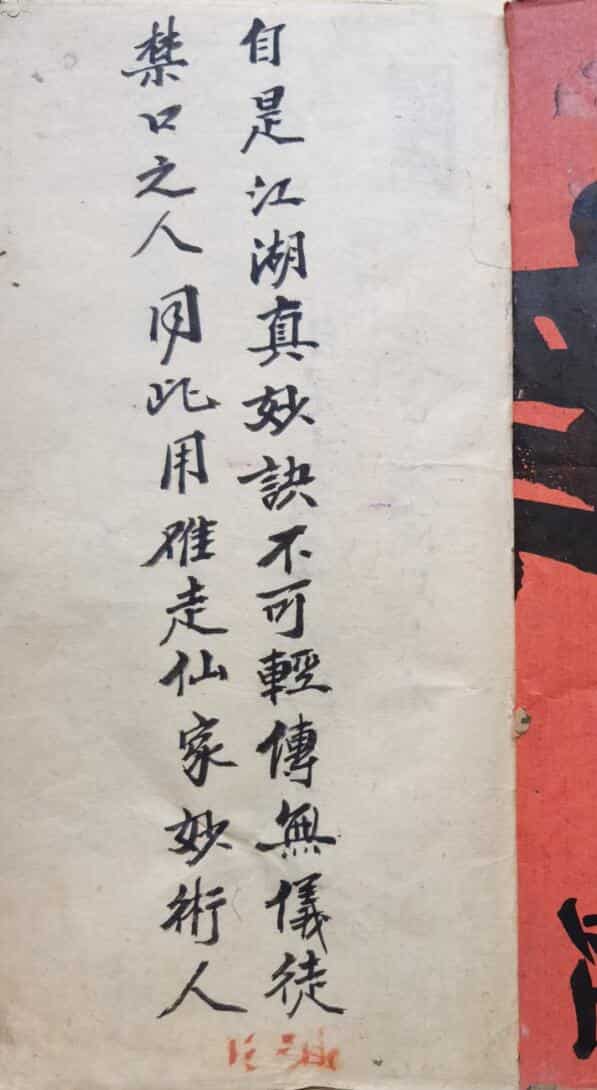 自是江湖真妙訣不可輕傳無儀徒
禁口之人用此用雖走仙家妙術人